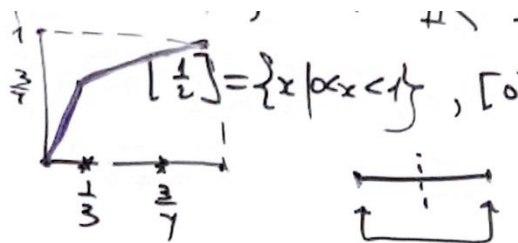 1
3/4 [1/2] = {x | 0<x<1}, [0
1
1/3 3/4